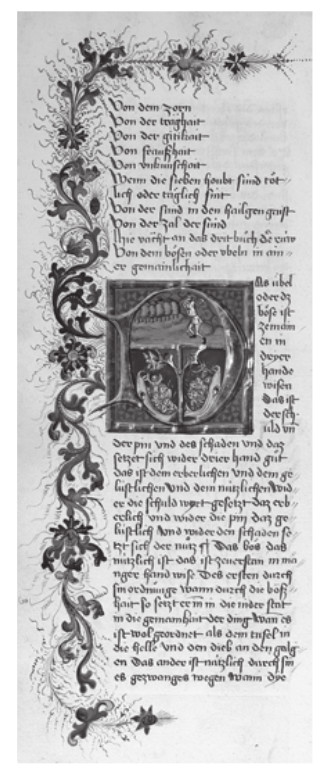 Von dem zorn
Von der traghait
Von der gitikait
Von fraußhait
Von vnkuinschait
Wenn die sieben houbt sünd töt
lich oder täglich sint
Von der sünd in den hailgen geist
Von der zal der sünd
hie vacht an das drit büch
Von dem bösen oder vbeln in ain
er gemainlichait
Das übel
oder dz
böse ist
zemain
en in
dryer
hande
wisen
das ist
der sch
uld vn
der pin vnd des schaden vnd daz
setzet sich wider drier hand güt
das ist dem erberlichen vnd dem ge
lustlichen vnd dem nützlichen wid
er die schuld wirt gesetzt daz erb
erlich vnd wider die pin daz ge
lustlich vnd wider den schaden se
tzt sich der nütz Das bös daß
nützlich ist das ist zeuerstan in ma
nger hand wise Des ersten durch
sin ordnunge wann durch die böß
hait so setzt er in in die inder stat
in die gemainhait der ding wan es
ist wol geordnet als dem tüfel in
die helle vnd den dieb an den galg
en Das ander ist nützlich durch sin
es gezwanges wegen wann dye